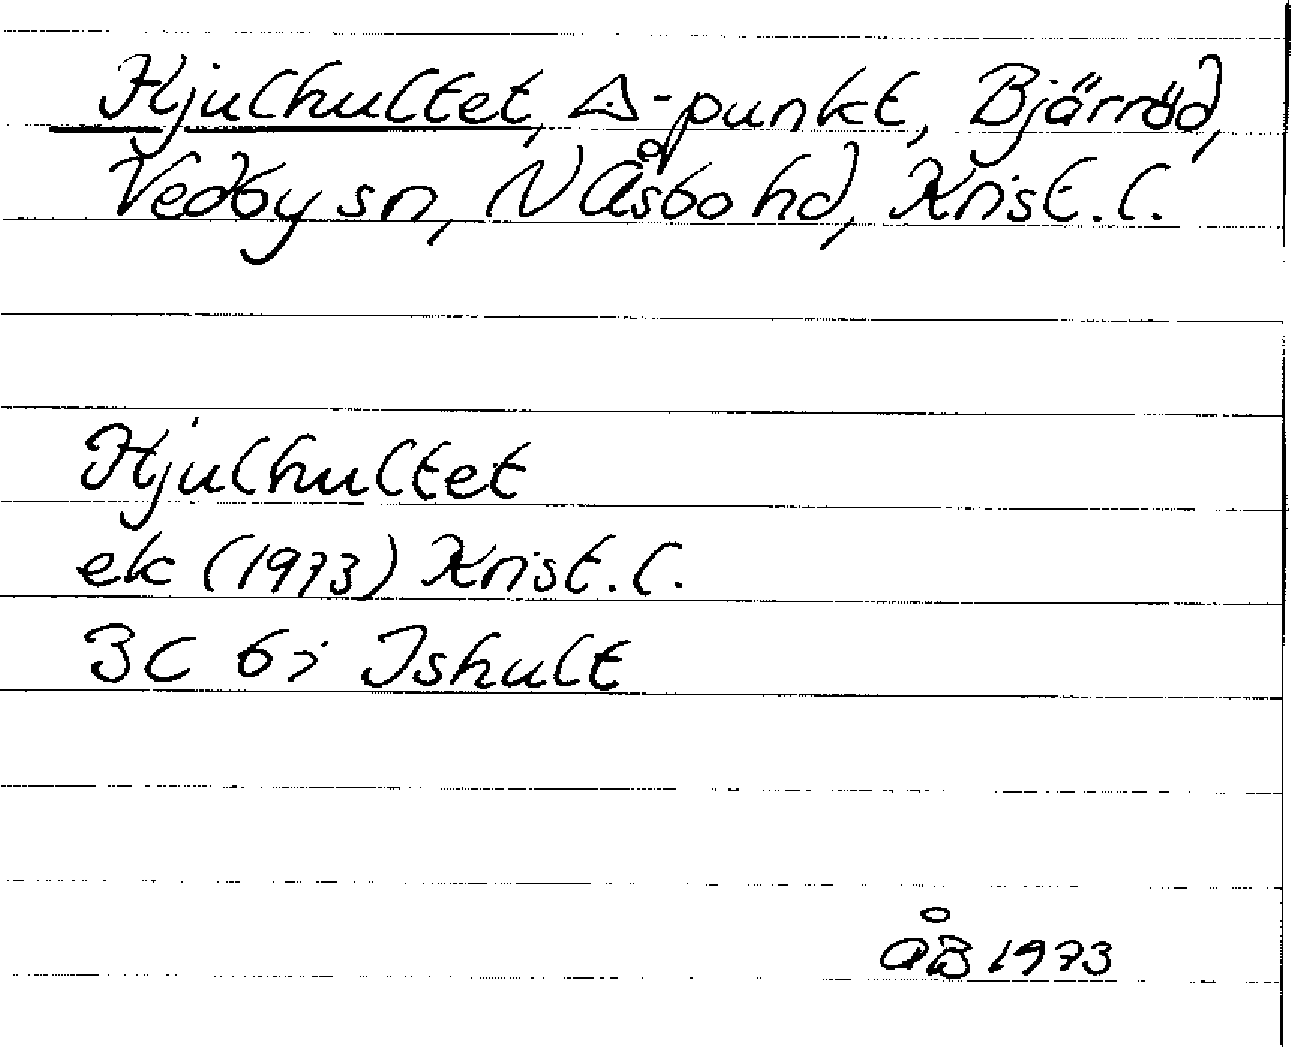 Hjulhultet, △-punkt, Bjärröd,
Vedby sn, N Åsbo hd, Krist. l.
Hjulhultet
ek (1973) Krist. l.
3C 6i Ishult
ÅB 1973